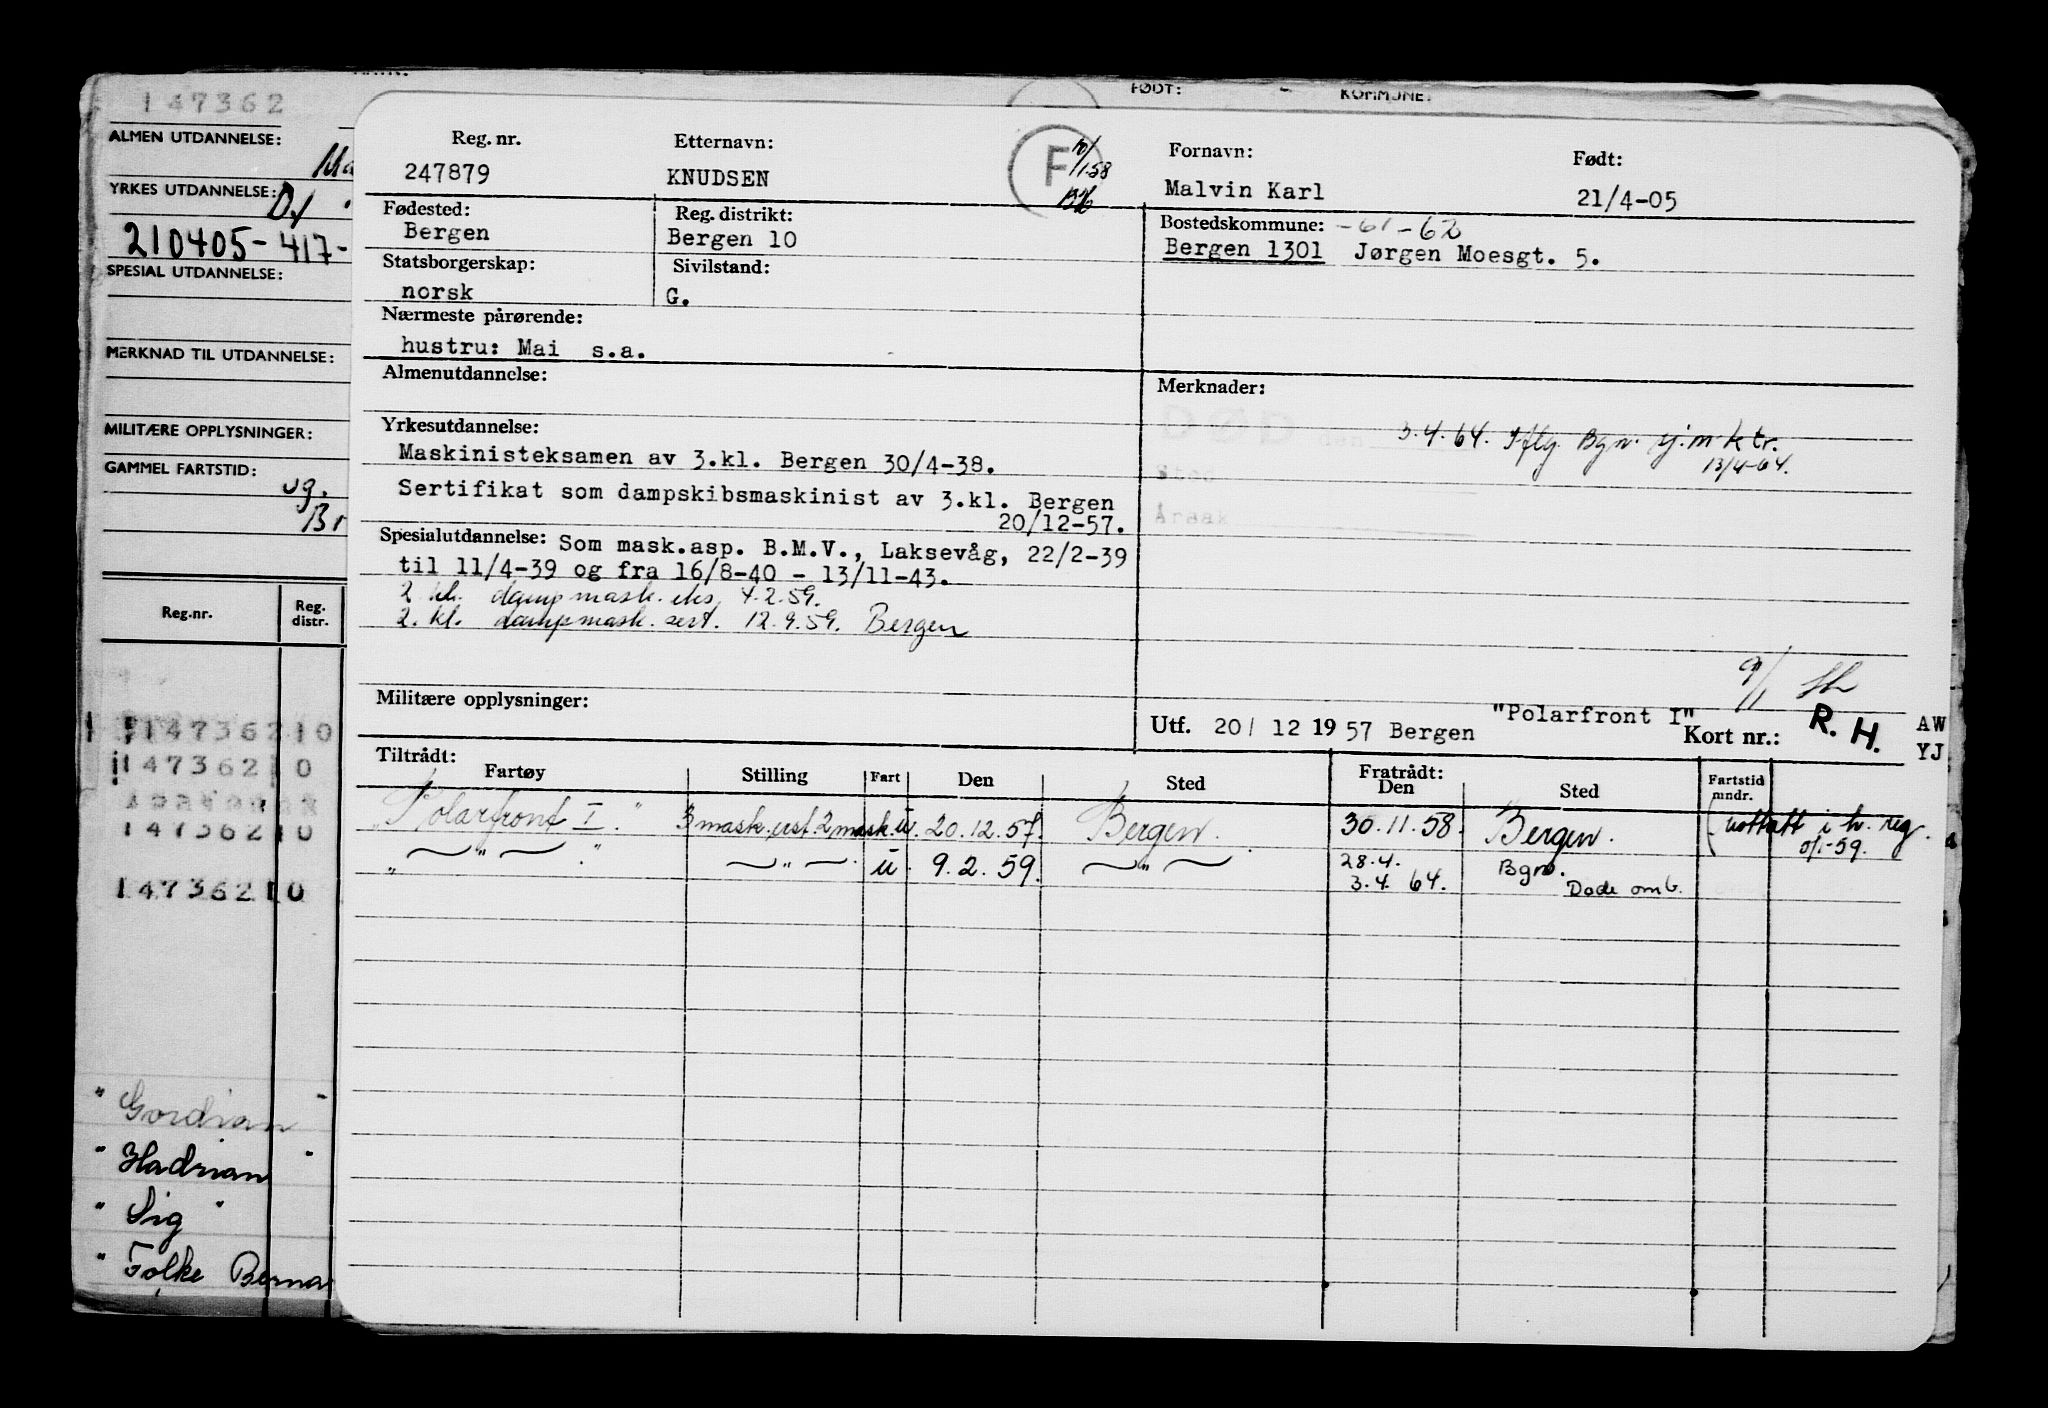 147362
ALMEN UTDANNELSE:
YRKES UTDANNELSE:
210405-417-
SPESIAL UTDANNELSE:
MERKNAD TIL UTDANNELSE:
MILITÆRE OPPLYSNINGER:
GAMMEL FARTSTID:
Reg.nr. Reg. distr.
147362 10
147362 10
147362 10
147362 10
"Gordian"
"Hadrian"
"Sig"
"Folke Berna
FØDT: KOMMUNE:
Reg. nr. Etternavn: Fornavn: Født:
247879 KNUDSEN F 10/1-58 Malvin Karl 21/4-05
Fødested: Reg. distrikt: Bostedskommune: -61-62
Bergen Bergen 10 Bergen 1301 Jørgen Moesgt. 5.
Statsborgerskap: Sivilstand:
norsk G.
Nærmeste pårørende:
hustru: Mai s.a.
Almenutdannelse: Merknader:
DØD den 3.4.64. Iflg. Bgn. sj.m.ktr.
13/4-64.
Sted
Årsak
Yrkesutdannelse:
Maskinisteksamen av 3.kl. Bergen 30/4-38.
Sertifikat som dampskibsmaskinist av 3.kl. Bergen
20/12-57.
Spesialutdannelse: Som mask.asp. B.M.V., Laksevåg, 22/2-39
til 11/4-39 og fra 16/8-40 - 13/11-43.
2 kl. damp mask. eks. 4.2.59.
2. kl. dampmask. sert. 12.9.59. Bergen
Militære opplysninger:
9/1
Utf. 20/ 12 1957 Bergen "Polarfront I" Kort nr.: R. H.
AW
YJ
Tiltrådt: Fratrådt:
Fartøy Stilling Fart Den Sted Den Sted Fartstid mndr.
"Polarfront I." 3 mask. erst. 2 mask. u. 20.12.57. Bergen. 30.11.58. Bergen. (notatt i h. reg.
0/1-59.
" — " — " — " — u. 9.2.59. — " — 28.4. Bgn.
3.4.64. Døde omb.